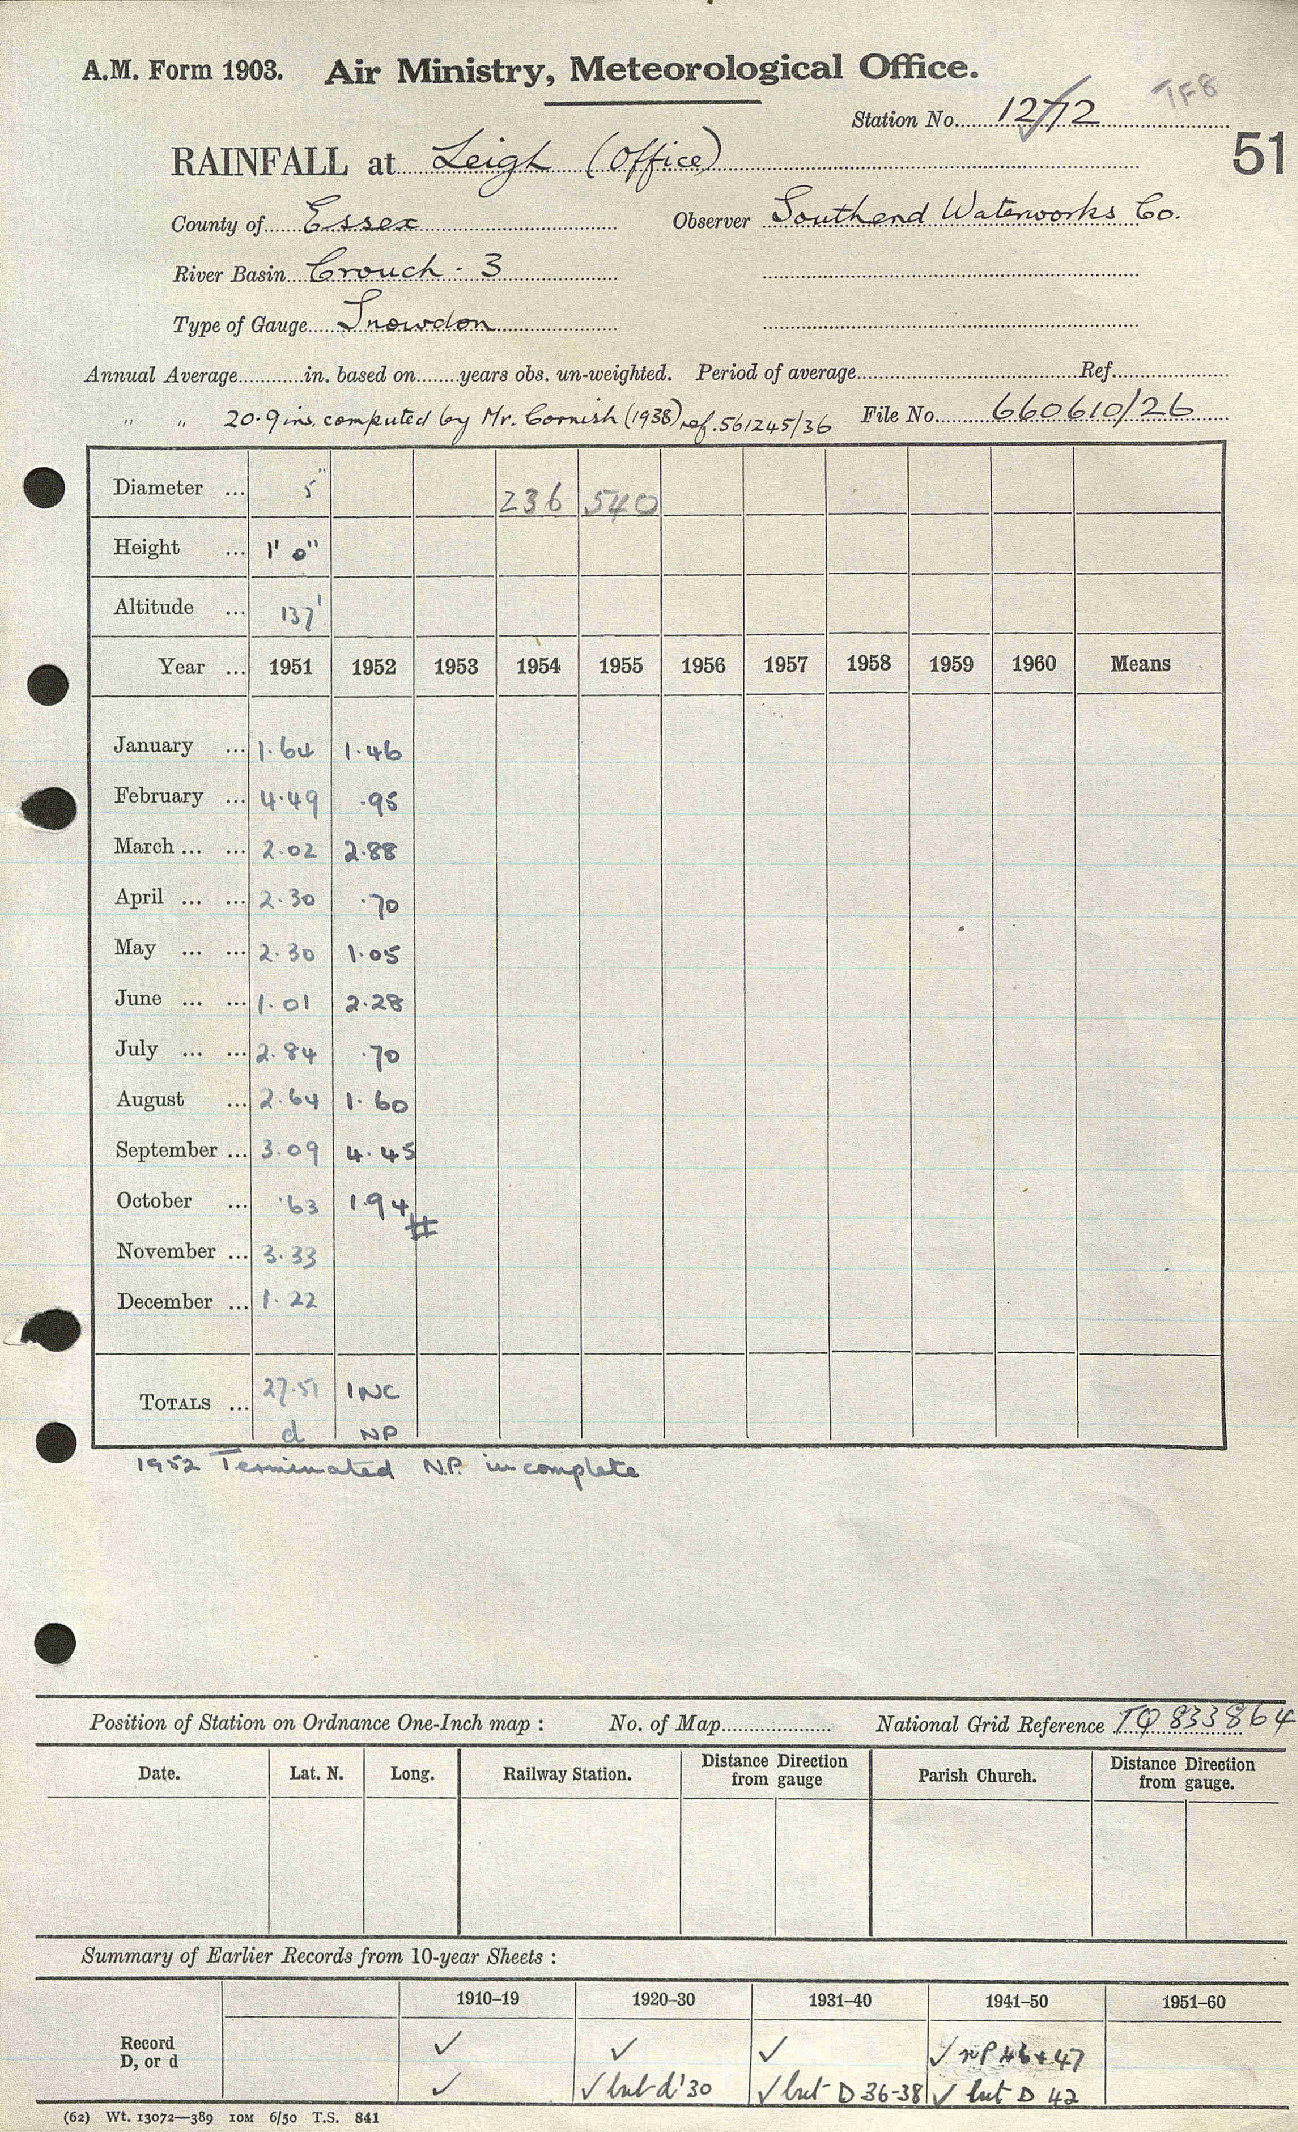 A.M. Form 1903. Air Ministry, Meteorological Office.
TF8
Station No. 1272
51
RAINFALL at Leigh (Office)
County of Essex Observer Southend Waterworks Co.
River Basin Crouch - 3
Type of Gauge Snowdon
Annual Average in. based on years obs. un-weighted. Period of average Ref.
" " 20.9 ins. computed by Mr. Cornish (1938) ref. 561245/36 File No. 660610/26
Diameter ... 5" 236 540
Height ... 1' 0"
Altitude ... 137'
Year ... 1951 1952 1953 1954 1955 1956 1957 1958 1959 1960 Means
January ... 1.64 1.46
February ... 4.49 .95
March ... ... 2.02 2.88
April ... ... 2.30 .70
May ... ... 2.30 1.05
June ... ... 1.01 2.28
July ... ... 2.84 .70
August ... 2.64 1.60
September ... 3.09 4.45
October ... .63 1.94 #
November ... 3.33
December ... 1.22
TOTALS ... 27.51 INC
d NP
1952 Terminated N.P. incomplete
Position of Station on Ordnance One-Inch map : No. of Map National Grid Reference TQ 833864
Date. Lat. N. Long. Railway Station. Distance from gauge Direction Parish Church. Distance from gauge. Direction
Summary of Earlier Records from 10-year Sheets :
1910–19 1920–30 1931–40 1941–50 1951–60
Record ✓ ✓ ✓ ✓ NP 46+47
D, or d ✓ ✓ but d '30 ✓ but D 36-38 ✓ but D 42
(62) Wt. 13072—389 10M 6/50 T.S. 841